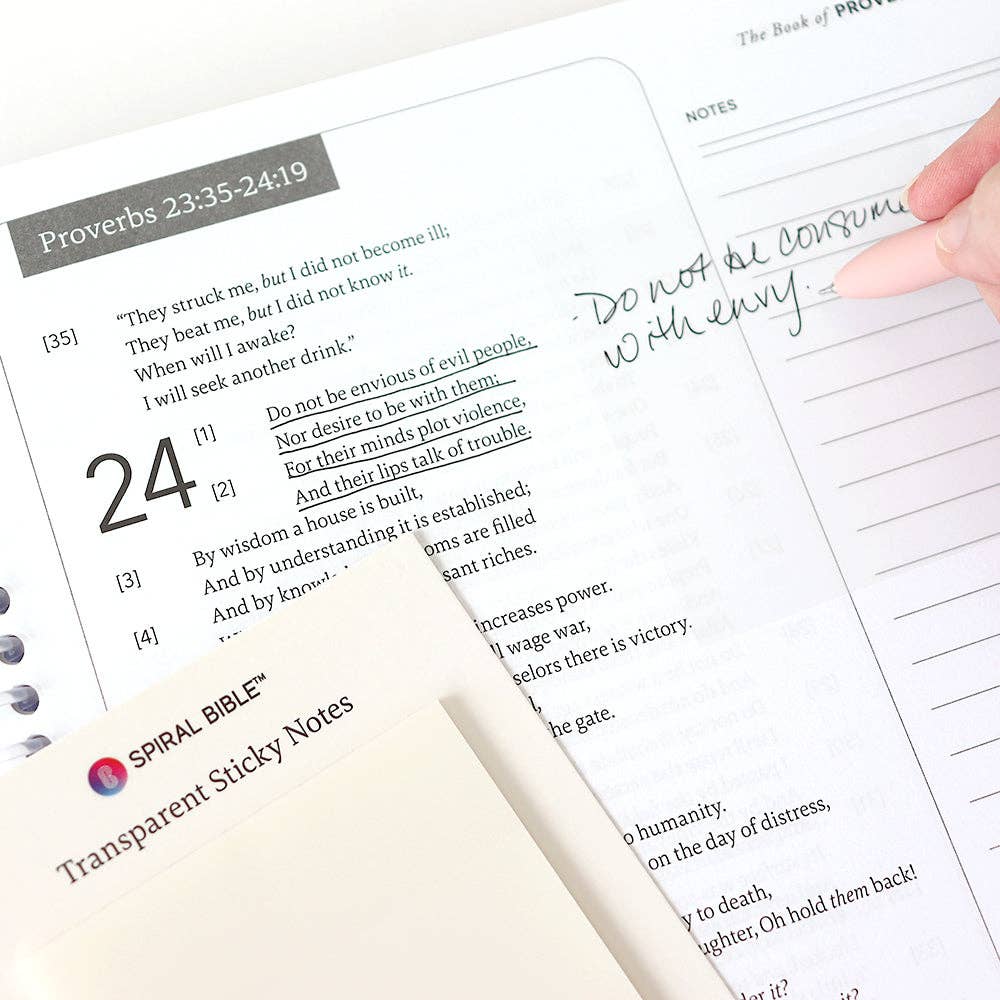 The Book of
NOTES
Proverbs 23:35-24:19
[35] “They struck me, but I did not become ill;
They beat me, but I did not know it.
When will I awake?
I will seek another drink.”
- Do not be
with envy.
24 [1] Do not be envious of evil people,
Nor desire to be with them;
[2] For their minds plot violence,
And their lips talk of trouble.
[3] By wisdom a house is built,
And by understanding it is established;
[4] And by are filled
riches.
increases power.
wage war,
there is victory.
he gate.
humanity.
on the day of distress,
to death,
Oh hold them back!
it?
it?
SPIRAL BIBLE™
Transparent Sticky Notes